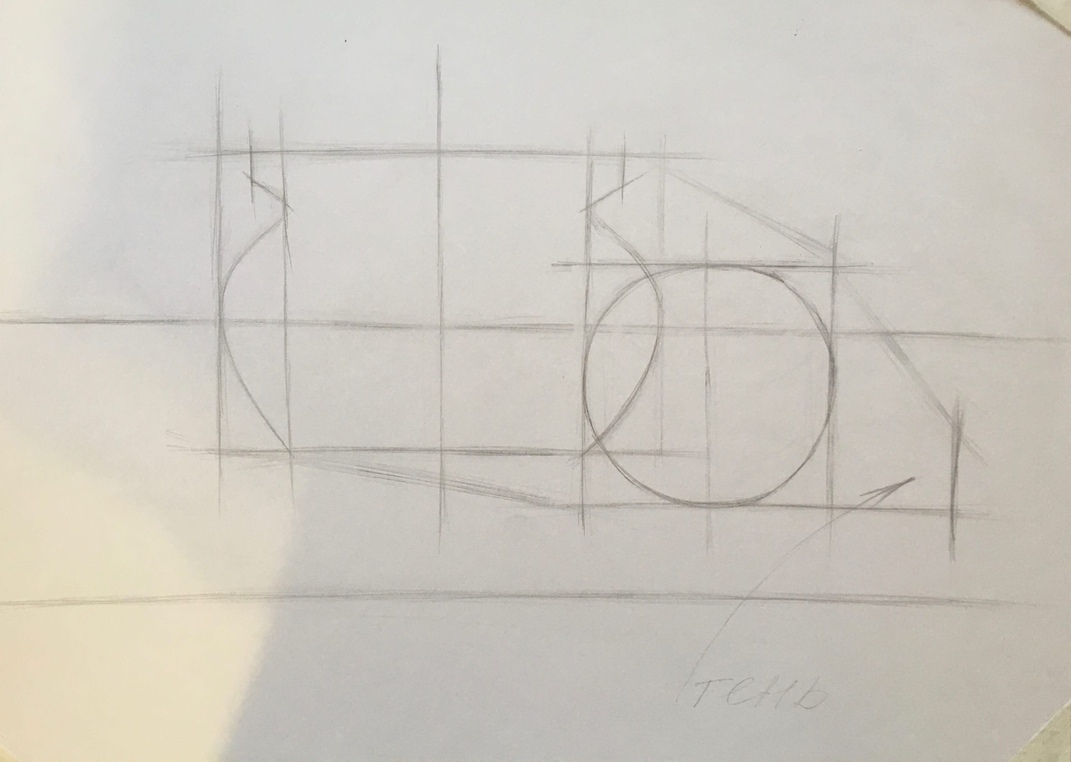 тень